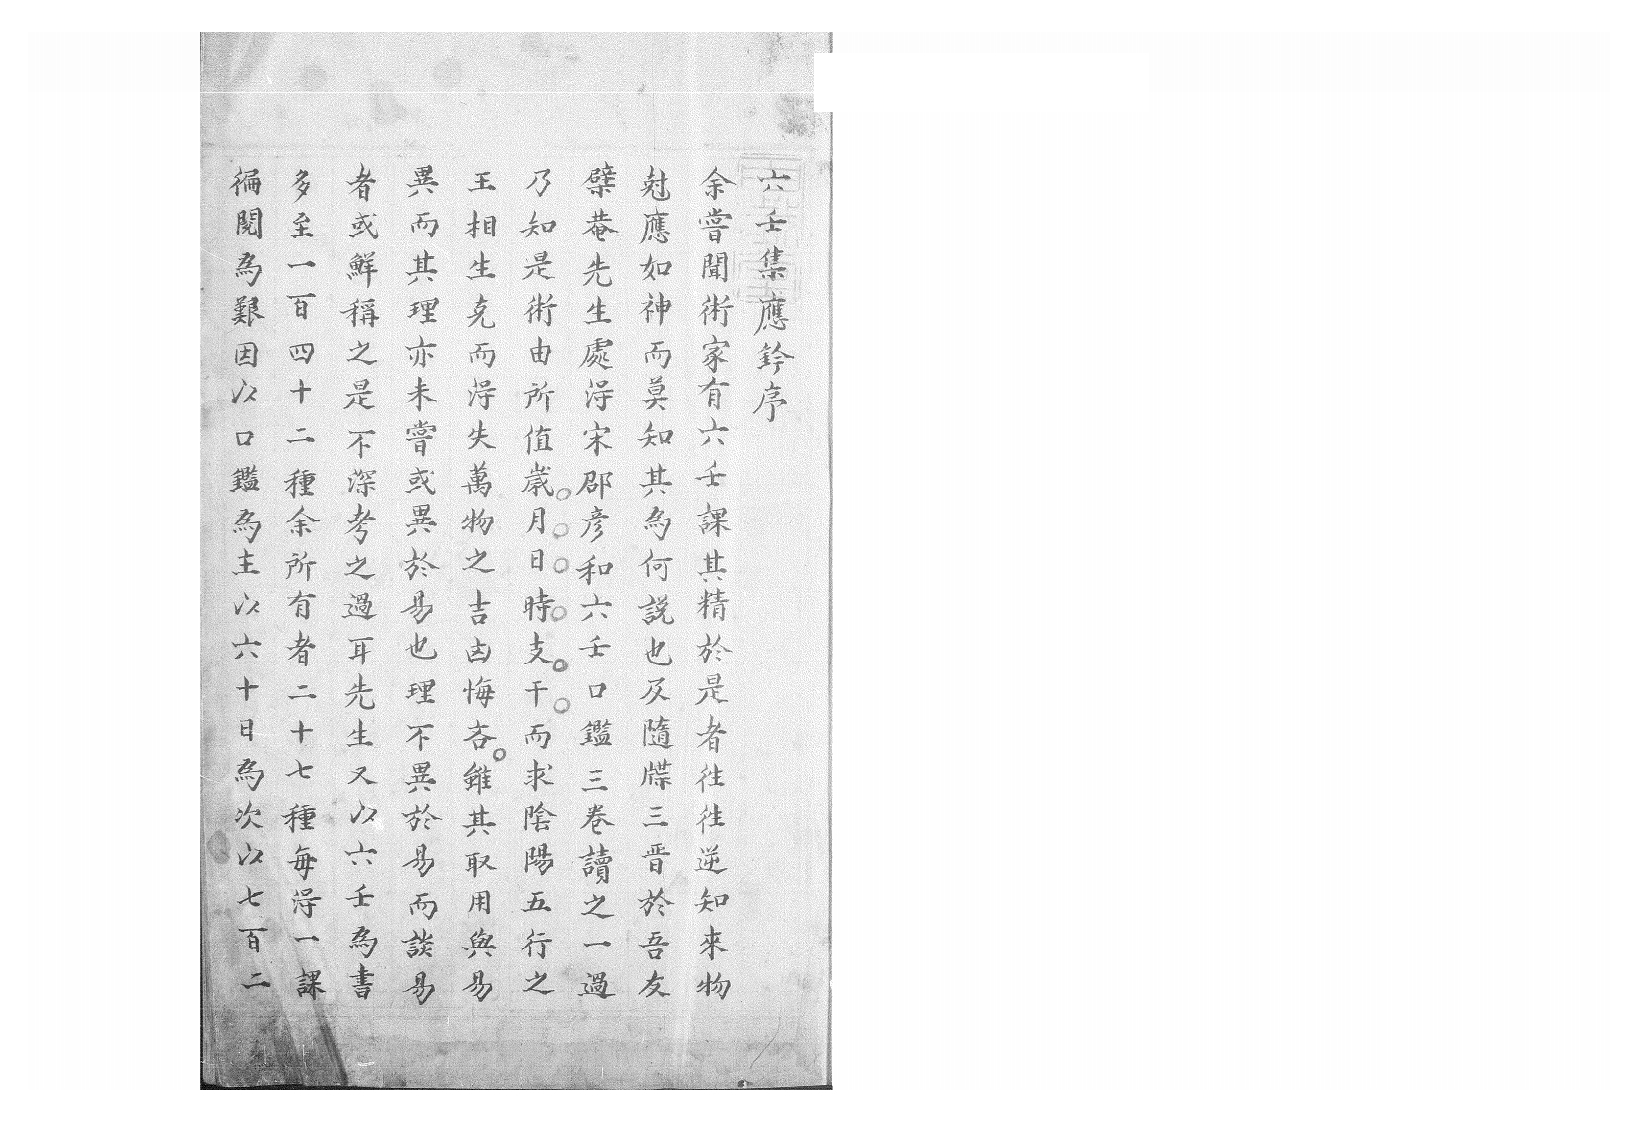 六壬集應鈐序
余嘗聞術家有六壬課其精於是者徃徃逆知來物
尅應如神而莫知其為何説也及隨牒三晋於吾友
檗菴先生處淂宋邵彦和六壬口鑑三卷讀之一過
乃知是術由所值歳月日時支干而求陰陽五行之
王相生克而淂失萬物之吉凶悔吝雖其取用與易
異而其理亦未嘗或異於易也理不異於易而談易
者或鮮稱之是不深考之過耳先生又以六壬為書
多至一百四十二種余所有者二十七種每淂一課
徧閱為艱因以口鑑為主以六十日為次以七百二